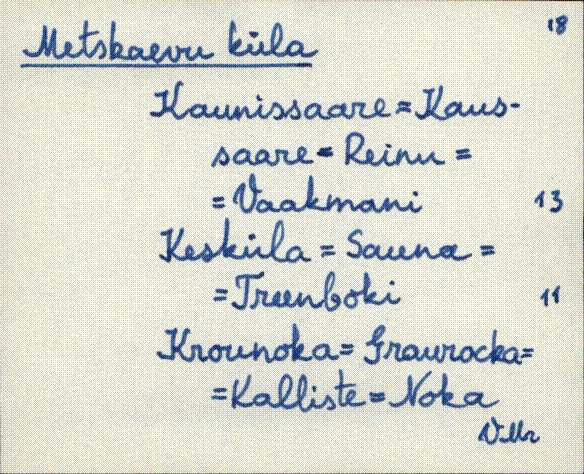 18
Metskaevu küla
Kaunissaare = Kaus-
saare = Reinu =
= Vaakmani 13
Kesküla = Sauna =
= Treenboki 11
Krounoka = Graurocka =
= Kalliste = Noka